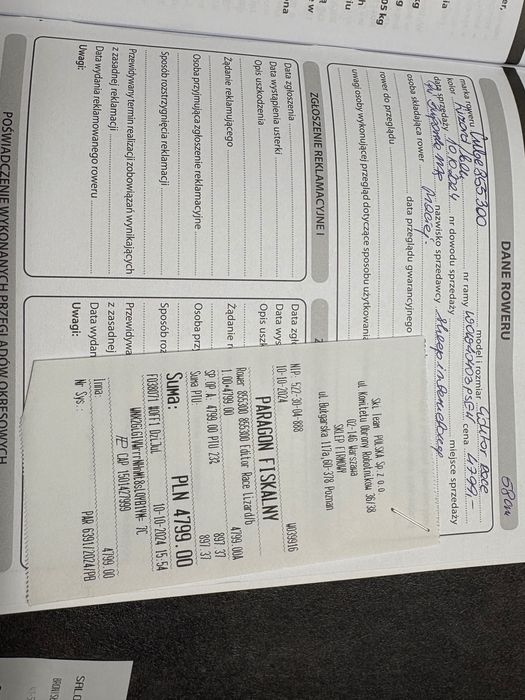 DANE ROWERU
68cm
marka roweru Cube 855300 model i rozmiar Editor Race
kolor lizard'n'blue nr ramy cena 4799,-
data sprzedaży 10.10.2024 nr dowodu sprzedaży miejsce sprzedaży
nazwisko sprzedawcy sklep internetowy
osoba składająca rower
data przeglądu gwarancyjnego
rower do przeglądu
uwagi osoby wykonującej przegląd dotyczące sposobu użytkowania
ZGŁOSZENIE REKLAMACYJNE I
Data zgłoszenia
Data wystąpienia usterki
Opis uszkodzenia
Żądanie reklamującego
Osoba przyjmująca zgłoszenie reklamacyjne
Sposób rozstrzygnięcia reklamacji
Przewidywany termin realizacji zobowiązań wynikających
z zasadnej reklamacji
Data wydania reklamowanego roweru
Uwagi:
Data zgł
Data wys
Opis uszk
Żądanie r
Osoba prz
Sposób roz
Przewidywa
z zasadnej
Data wydan
Uwagi:
POŚWIADCZENIE WYKONANYCH PRZEGLĄDÓW OKRESOWYCH
Ski Team POLSKA Sp z o.o.
ul. Komitetu Obrony Robotników 36/38
02-146 Warszawa
SKLEP FIRMOWY
ul. Bułgarska 117a, 60-378 Poznań
NIP: 522-30-04-688
10-10-2024 W039916
PARAGON FISKALNY
Rower 855300 855300 Editor Race lizard/b
1.00×4799.00 4799.00A
SP.OP.A: 4799.00 PTU 23% 897.37
Suma PTU: 897.37
Suma: PLN 4799.00
F038071 #OFF1 Dz.Jul 10-10-2024 15:54
CAP 1501427999
Inna: 4799.00
Nr Sys.: PAR 6391/2024/PB
SALO